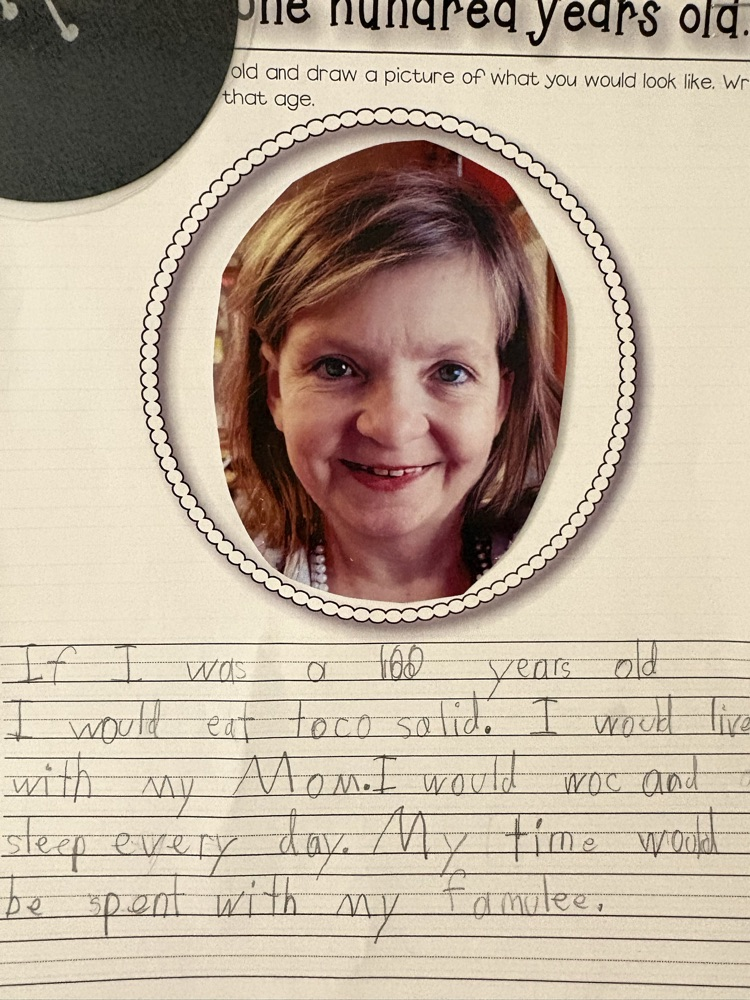 one hundred years old.
old and draw a picture of what you would look like. Wr
that age.
If I was a 100 years old
I would eat toco salid. I woud live
with my Mom. I would woc and
sleep every day. My time would
be spent with my famulee.